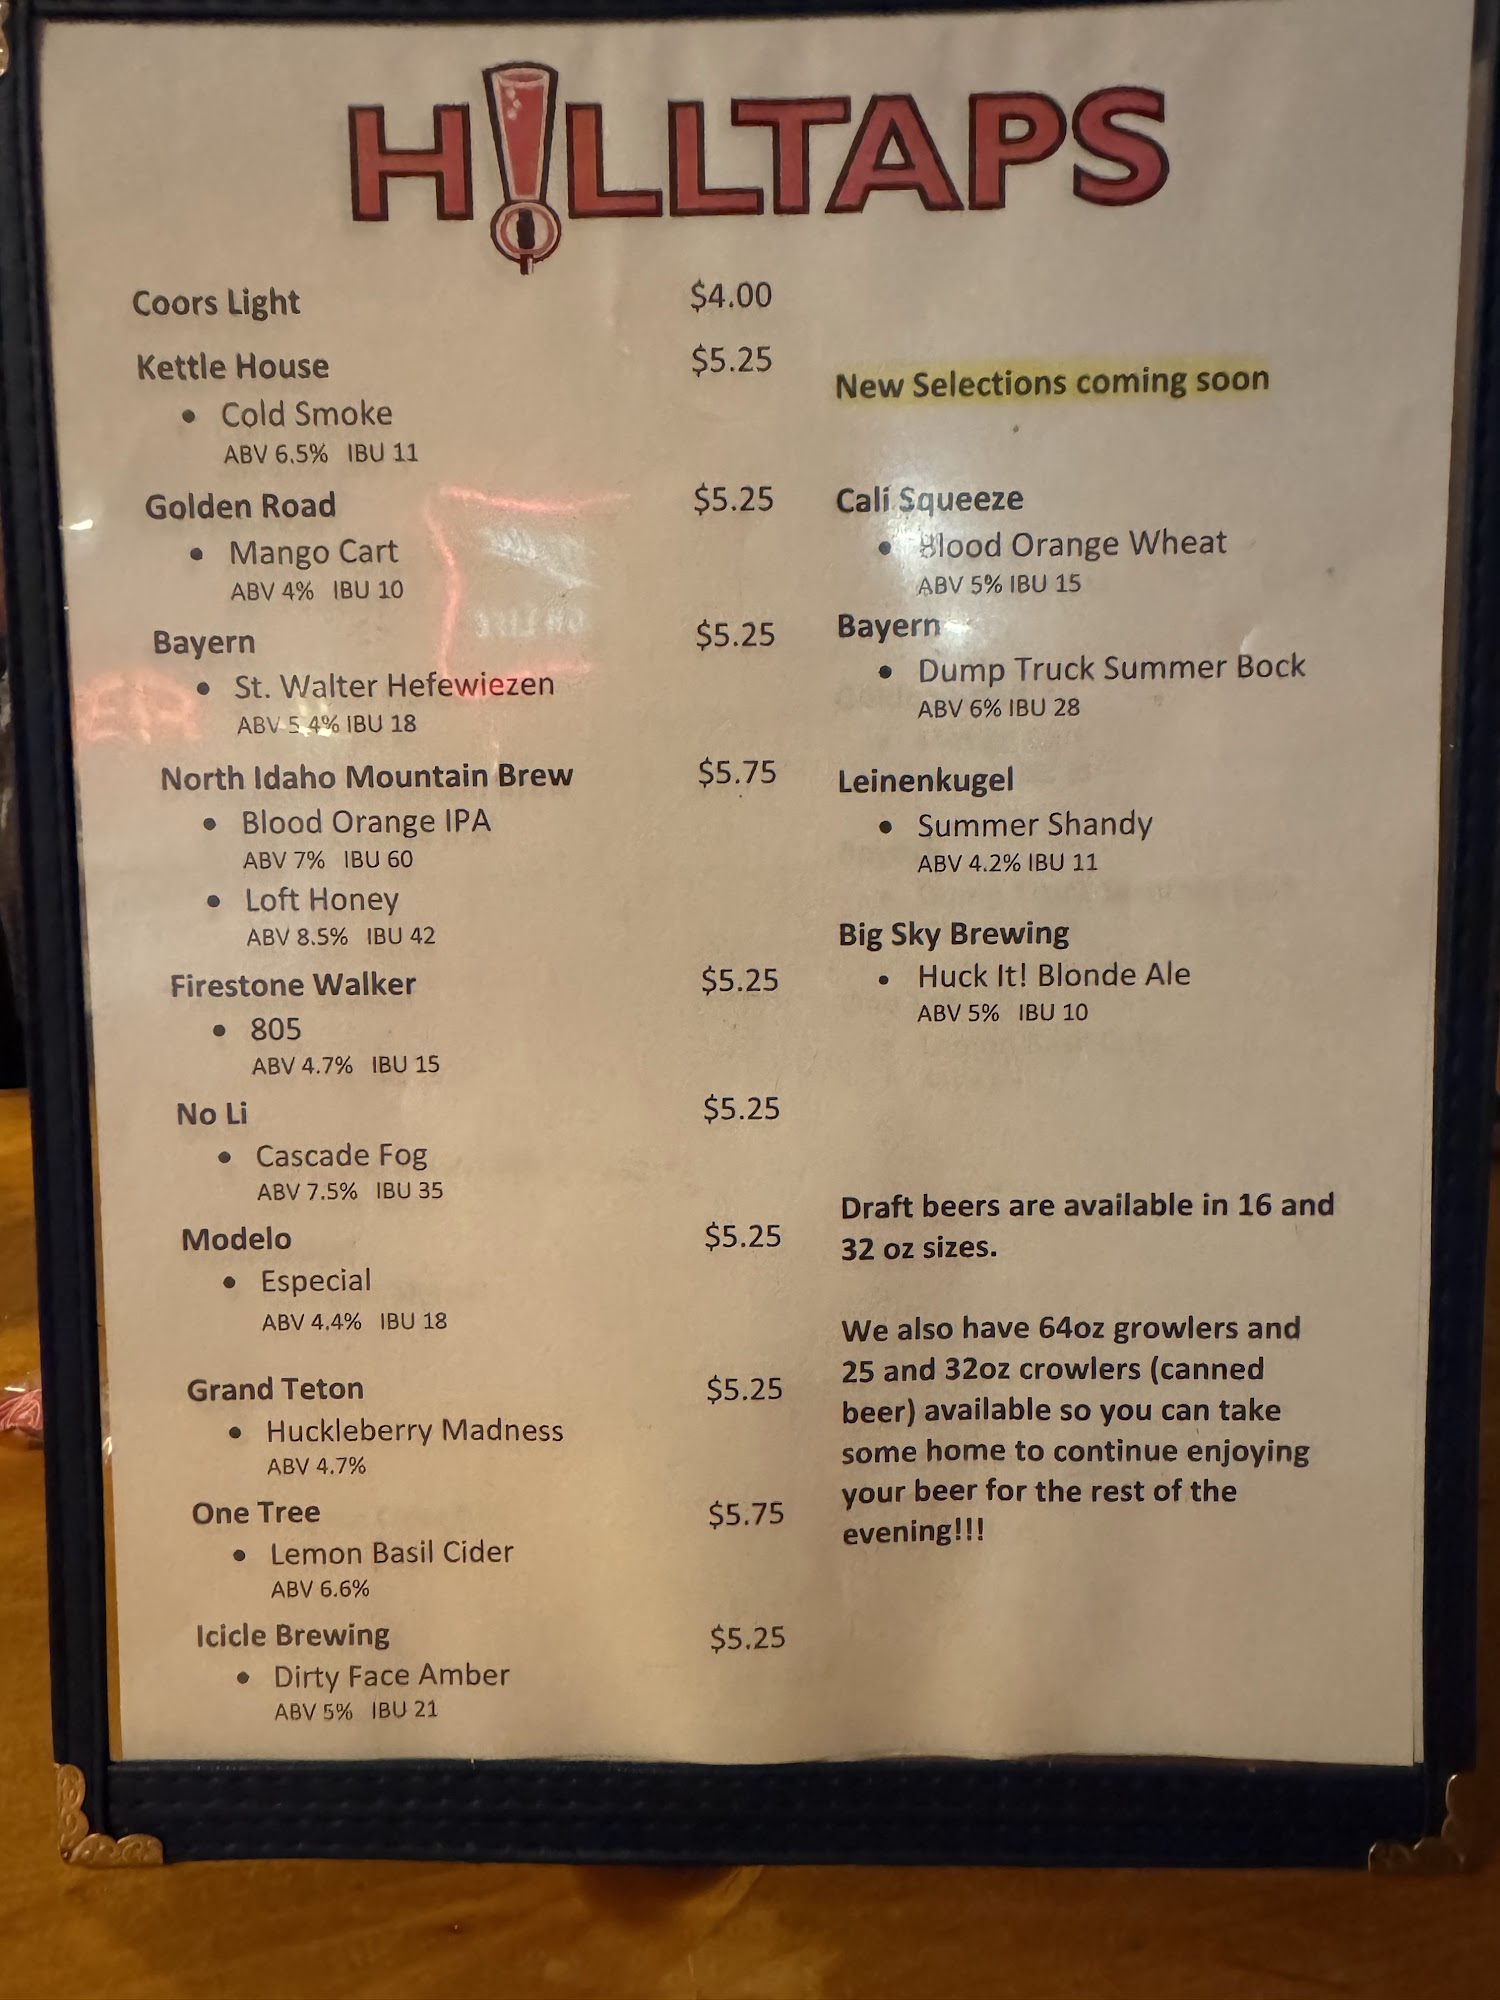 HILLTAPS
Coors Light $4.00
Kettle House $5.25
• Cold Smoke
ABV 6.5% IBU 11
Golden Road $5.25
• Mango Cart
ABV 4% IBU 10
Bayern $5.25
• St. Walter Hefewiezen
ABV 5.4% IBU 18
North Idaho Mountain Brew $5.75
• Blood Orange IPA
ABV 7% IBU 60
• Loft Honey
ABV 8.5% IBU 42
Firestone Walker $5.25
• 805
ABV 4.7% IBU 15
No Li $5.25
• Cascade Fog
ABV 7.5% IBU 35
Modelo $5.25
• Especial
ABV 4.4% IBU 18
Grand Teton $5.25
• Huckleberry Madness
ABV 4.7%
One Tree $5.75
• Lemon Basil Cider
ABV 6.6%
Icicle Brewing $5.25
• Dirty Face Amber
ABV 5% IBU 21
New Selections coming soon
Cali Squeeze
• Blood Orange Wheat
ABV 5% IBU 15
Bayern
• Dump Truck Summer Bock
ABV 6% IBU 28
Leinenkugel
• Summer Shandy
ABV 4.2% IBU 11
Big Sky Brewing
• Huck It! Blonde Ale
ABV 5% IBU 10
Draft beers are available in 16 and
32 oz sizes.
We also have 64oz growlers and
25 and 32oz crowlers (canned
beer) available so you can take
some home to continue enjoying
your beer for the rest of the
evening!!!